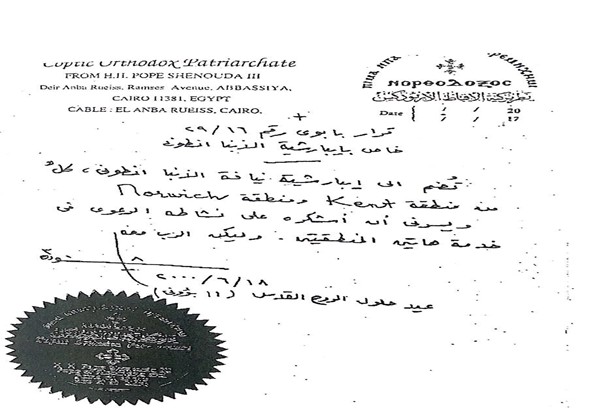 Coptic Orthodox Patriarchate
FROM H.H. POPE SHENOUDA III
Deir Anba Rueiss, Ramses Avenue, ABBASSIYA,
CAIRO 11381, EGYPT
CABLE : EL ANBA RUEISS, CAIRO.
بطريركية الاقباط الارثوذكس
Date / / 20
/ / 17
قرار بابوى رقم ٢٩/١٦
خاص بايبارشية الأنبا انطونى
تُضم الى إيبارشية نيافة الأنبا انطونى، كلٌ
من منطقة Kent ومنطقة Norwich
ويسرنى أن أشكره على نشاطه الرعوى فى
خدمة هاتين المنطقتين. وليكن الرب معه
شنوده
٢٠٠٠/٦/١٨
عيد حلول الروح القدس (١١ بؤونى)